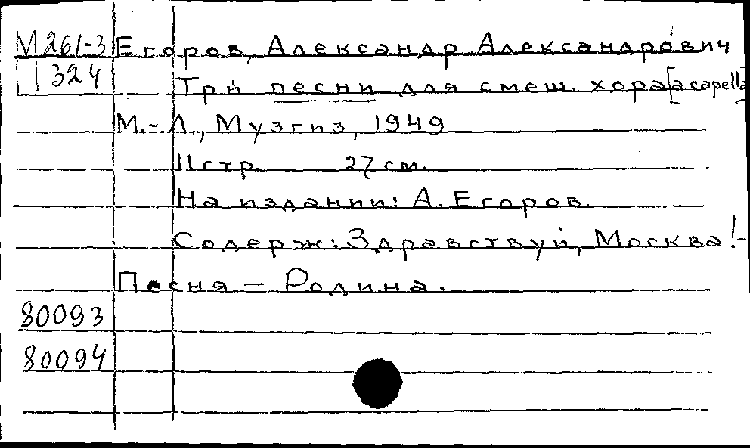 М261-3 Егоров, Александр Александрович
1324 Три песни для смеш. хора [acapella]
М.-Л., Музгиз, 1949
11 стр. 27 см.
На издании: А. Егоров.
Содерж: Здравствуй, Москва! -
Песня - Родина.
80093
80094